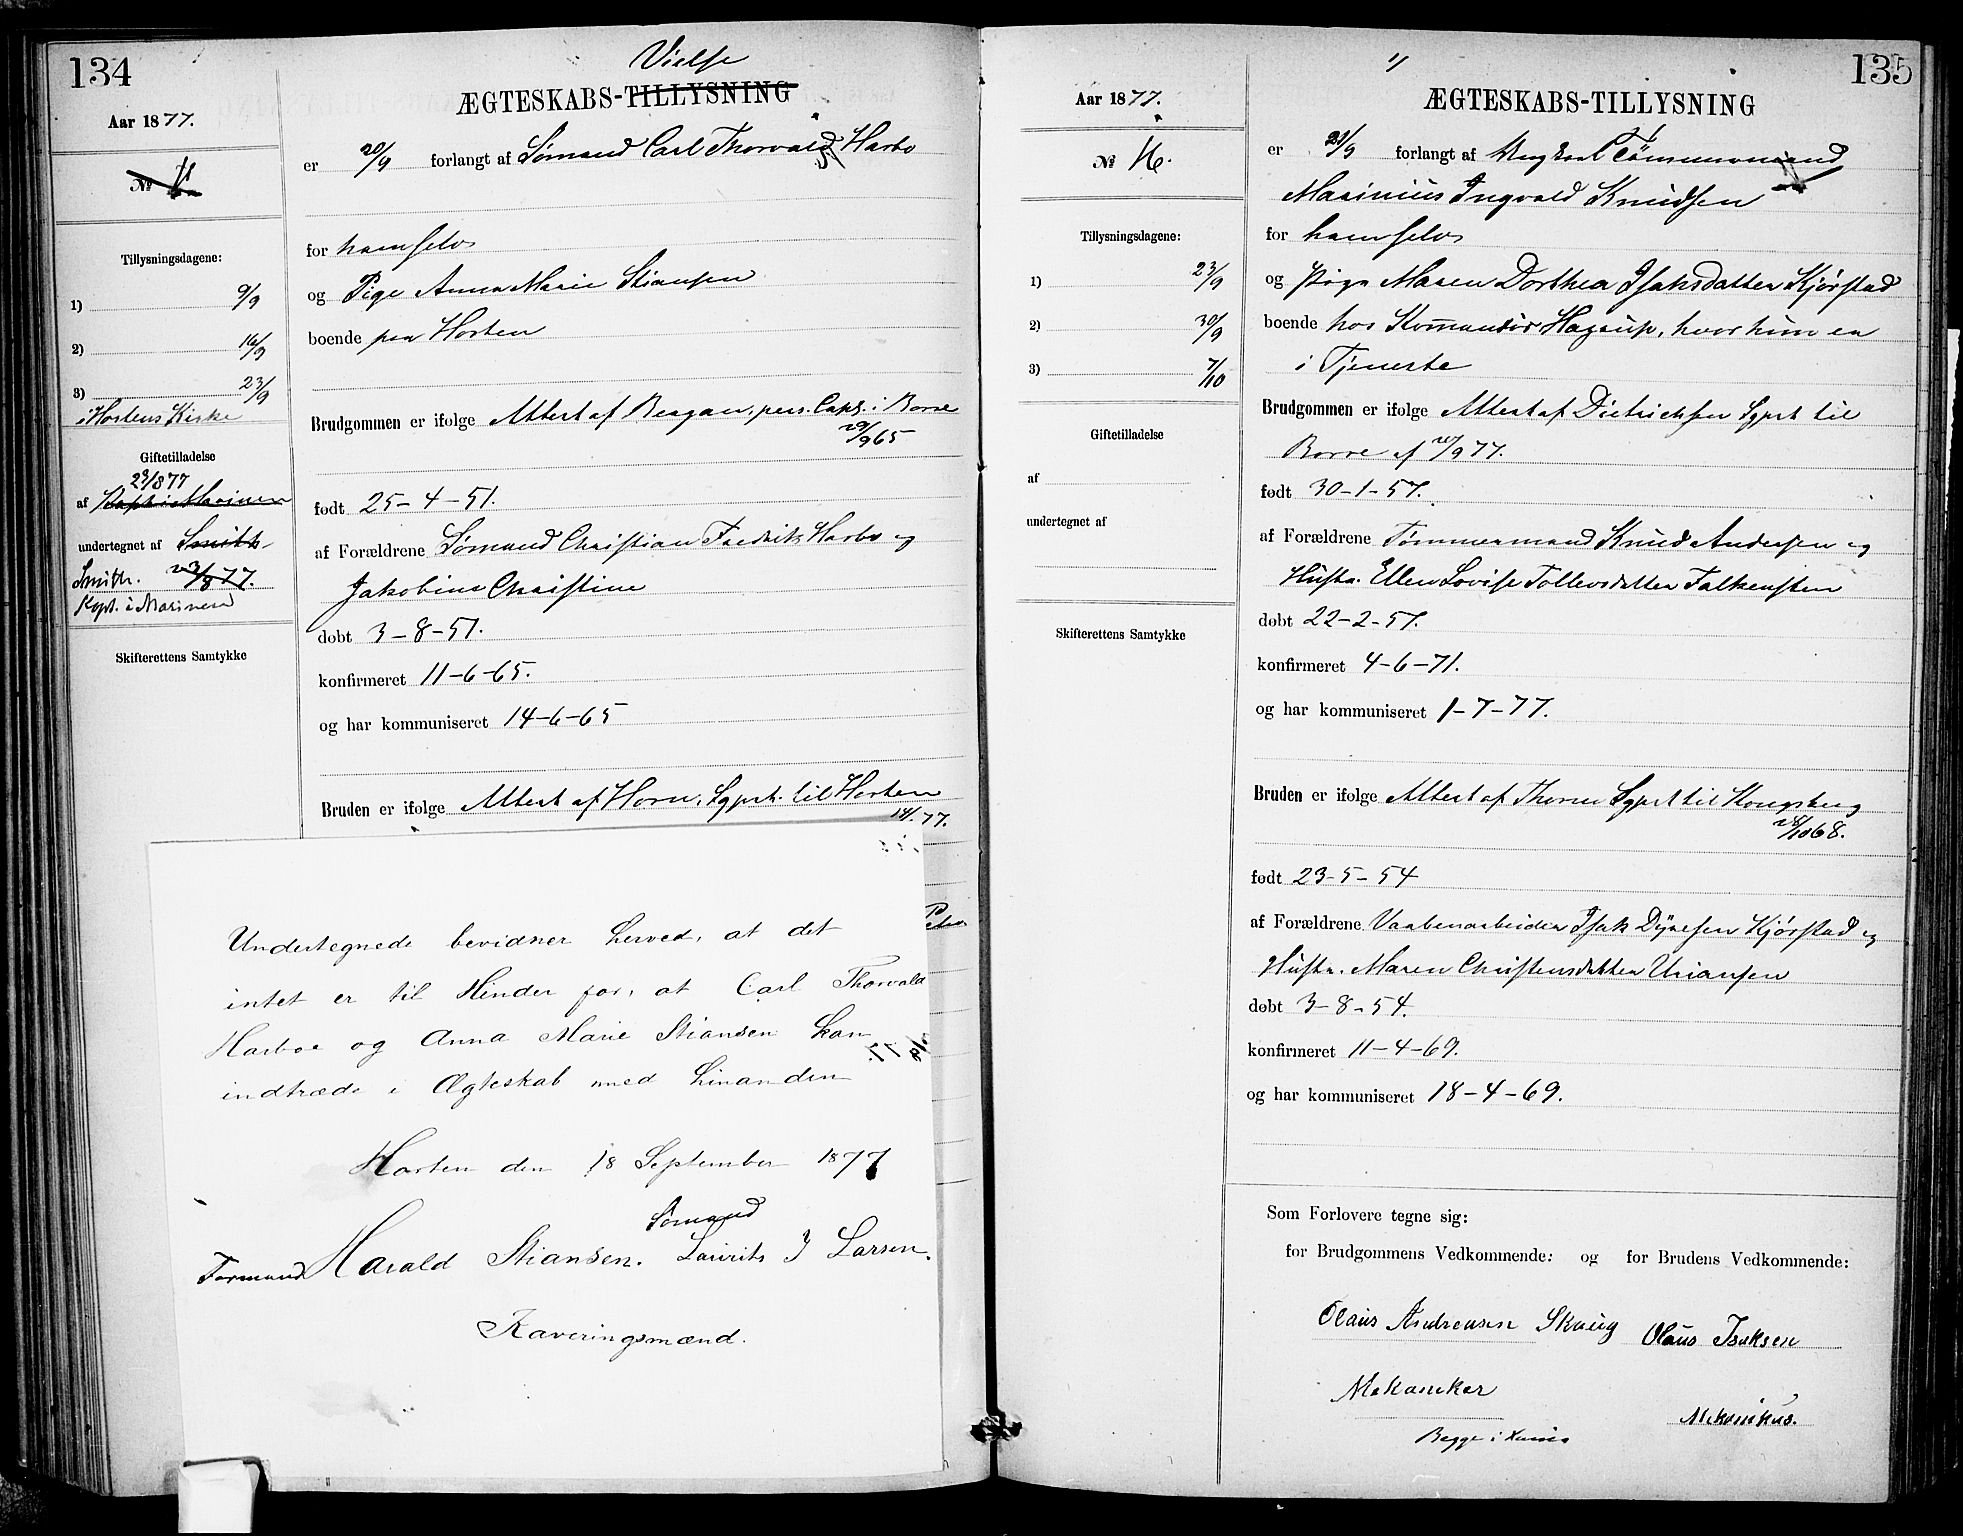 134
Aar 1877.
Tillysningsdagene:
1) 9/9
2) 16/9
3) 23/9
i Hortens Kirke
Giftetilladelse
23/8 77
af Kapt i Marinen
undertegnet af Smith
Smith. 23/8 77.
Kapt. i Marinen
Skifterettens Samtykke
Vielse
ÆGTESKABS-TILLYSNING
er 20/9 forlangt af Sømand Carl Thorvald Harbo
for ham selv
og Pige Anna Marie Stiansen
boende paa Horten
Brudgommen er ifølge Attest af pers. Cap. i Borre
29/9 65
født 25-4-51.
af Forældrene Sømand Christian Fredrik Harbo og
Jakobine Christine
døbt 3-8-51.
konfirmeret 11-6-65.
og har kommuniseret 14-6-65
Bruden er ifølge Attest af Horn, Sgprt. til Horten
77.
Undertegnede bevidner herved, at det
intet er til Hinder for, at Carl Thorvald
Harboe og Anna Marie Stiansen kan
indtræde i Ægteskab med hinanden
Horten den 18 September 1877
Sømand
Formand Harald Stiansen. Laurits J Larsen.
Kaveringsmænd.
135
Aar 1877.
№ 16.
Tillysningsdagene:
1) 23/9
2) 30/9
3) 7/10
Giftetilladelse
af
undertegnet af
Skifterettens Samtykke
ÆGTESKABS-TILLYSNING
er 21/9 forlangt af Ungkarl Tømmermand
Marinius Ingvald Knudsen
for ham selv
og Pige Maren Dorthea Isaksdatter Kjørstad
boende hos Komandør Hagerup, hvor hun er
i Tjeneste
Brudgommen er ifølge Attest af Dietrichsen Sgprt til
Borre af /9 77.
født 30-1-57.
af Forældrene Tømmermand Knud Andersen og
Hustr. Ellen Lovise Tollevsdatter Falkensten
døbt 22-2-57.
konfirmeret 4-6-71.
og har kommuniseret 1-7-77.
Bruden er ifølge Attest af Sgprt til Kongsberg
28/10 68.
født 23-5-54
af Forældrene Vaabenarbeider Isak Dyresen Kjørstad og
Hustr. Maren Christensdatter Uriansen
døbt 3-8-54.
konfirmeret 11-4-69.
og har kommuniseret 18-4-69.
Som Forlovere tegne sig:
for Brudgommens Vedkommende: og for Brudens Vedkommende:
Olaus Andreasen Skaug Olaus Isaksen
Mekaniker
Mekanikus.
Begge i